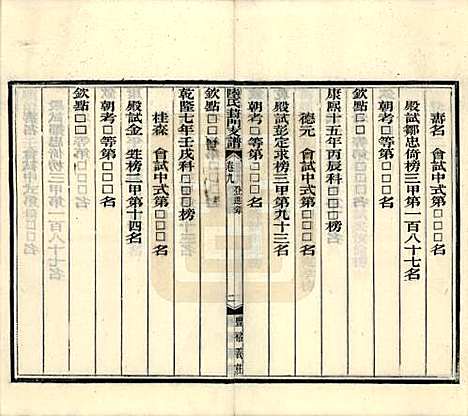 壽名　會試中式第□□□名
殿試鄒忠倚榜三甲第一百八十七名
朝考□等第□□□名
欽點□□
康熙十五年丙辰科□□榜
德元　會試中式第□□□名
殿試彭定求榜三甲第九十三名
朝考□等第□□□名
欽點□□
陸氏葑門支譜
卷九
登進考
二
豐裕義莊
乾隆七年壬戌科□□榜
桂森　會試中式第□□□名
殿試金　甡榜三甲第十四名
朝考□等第□□□名
欽點□□